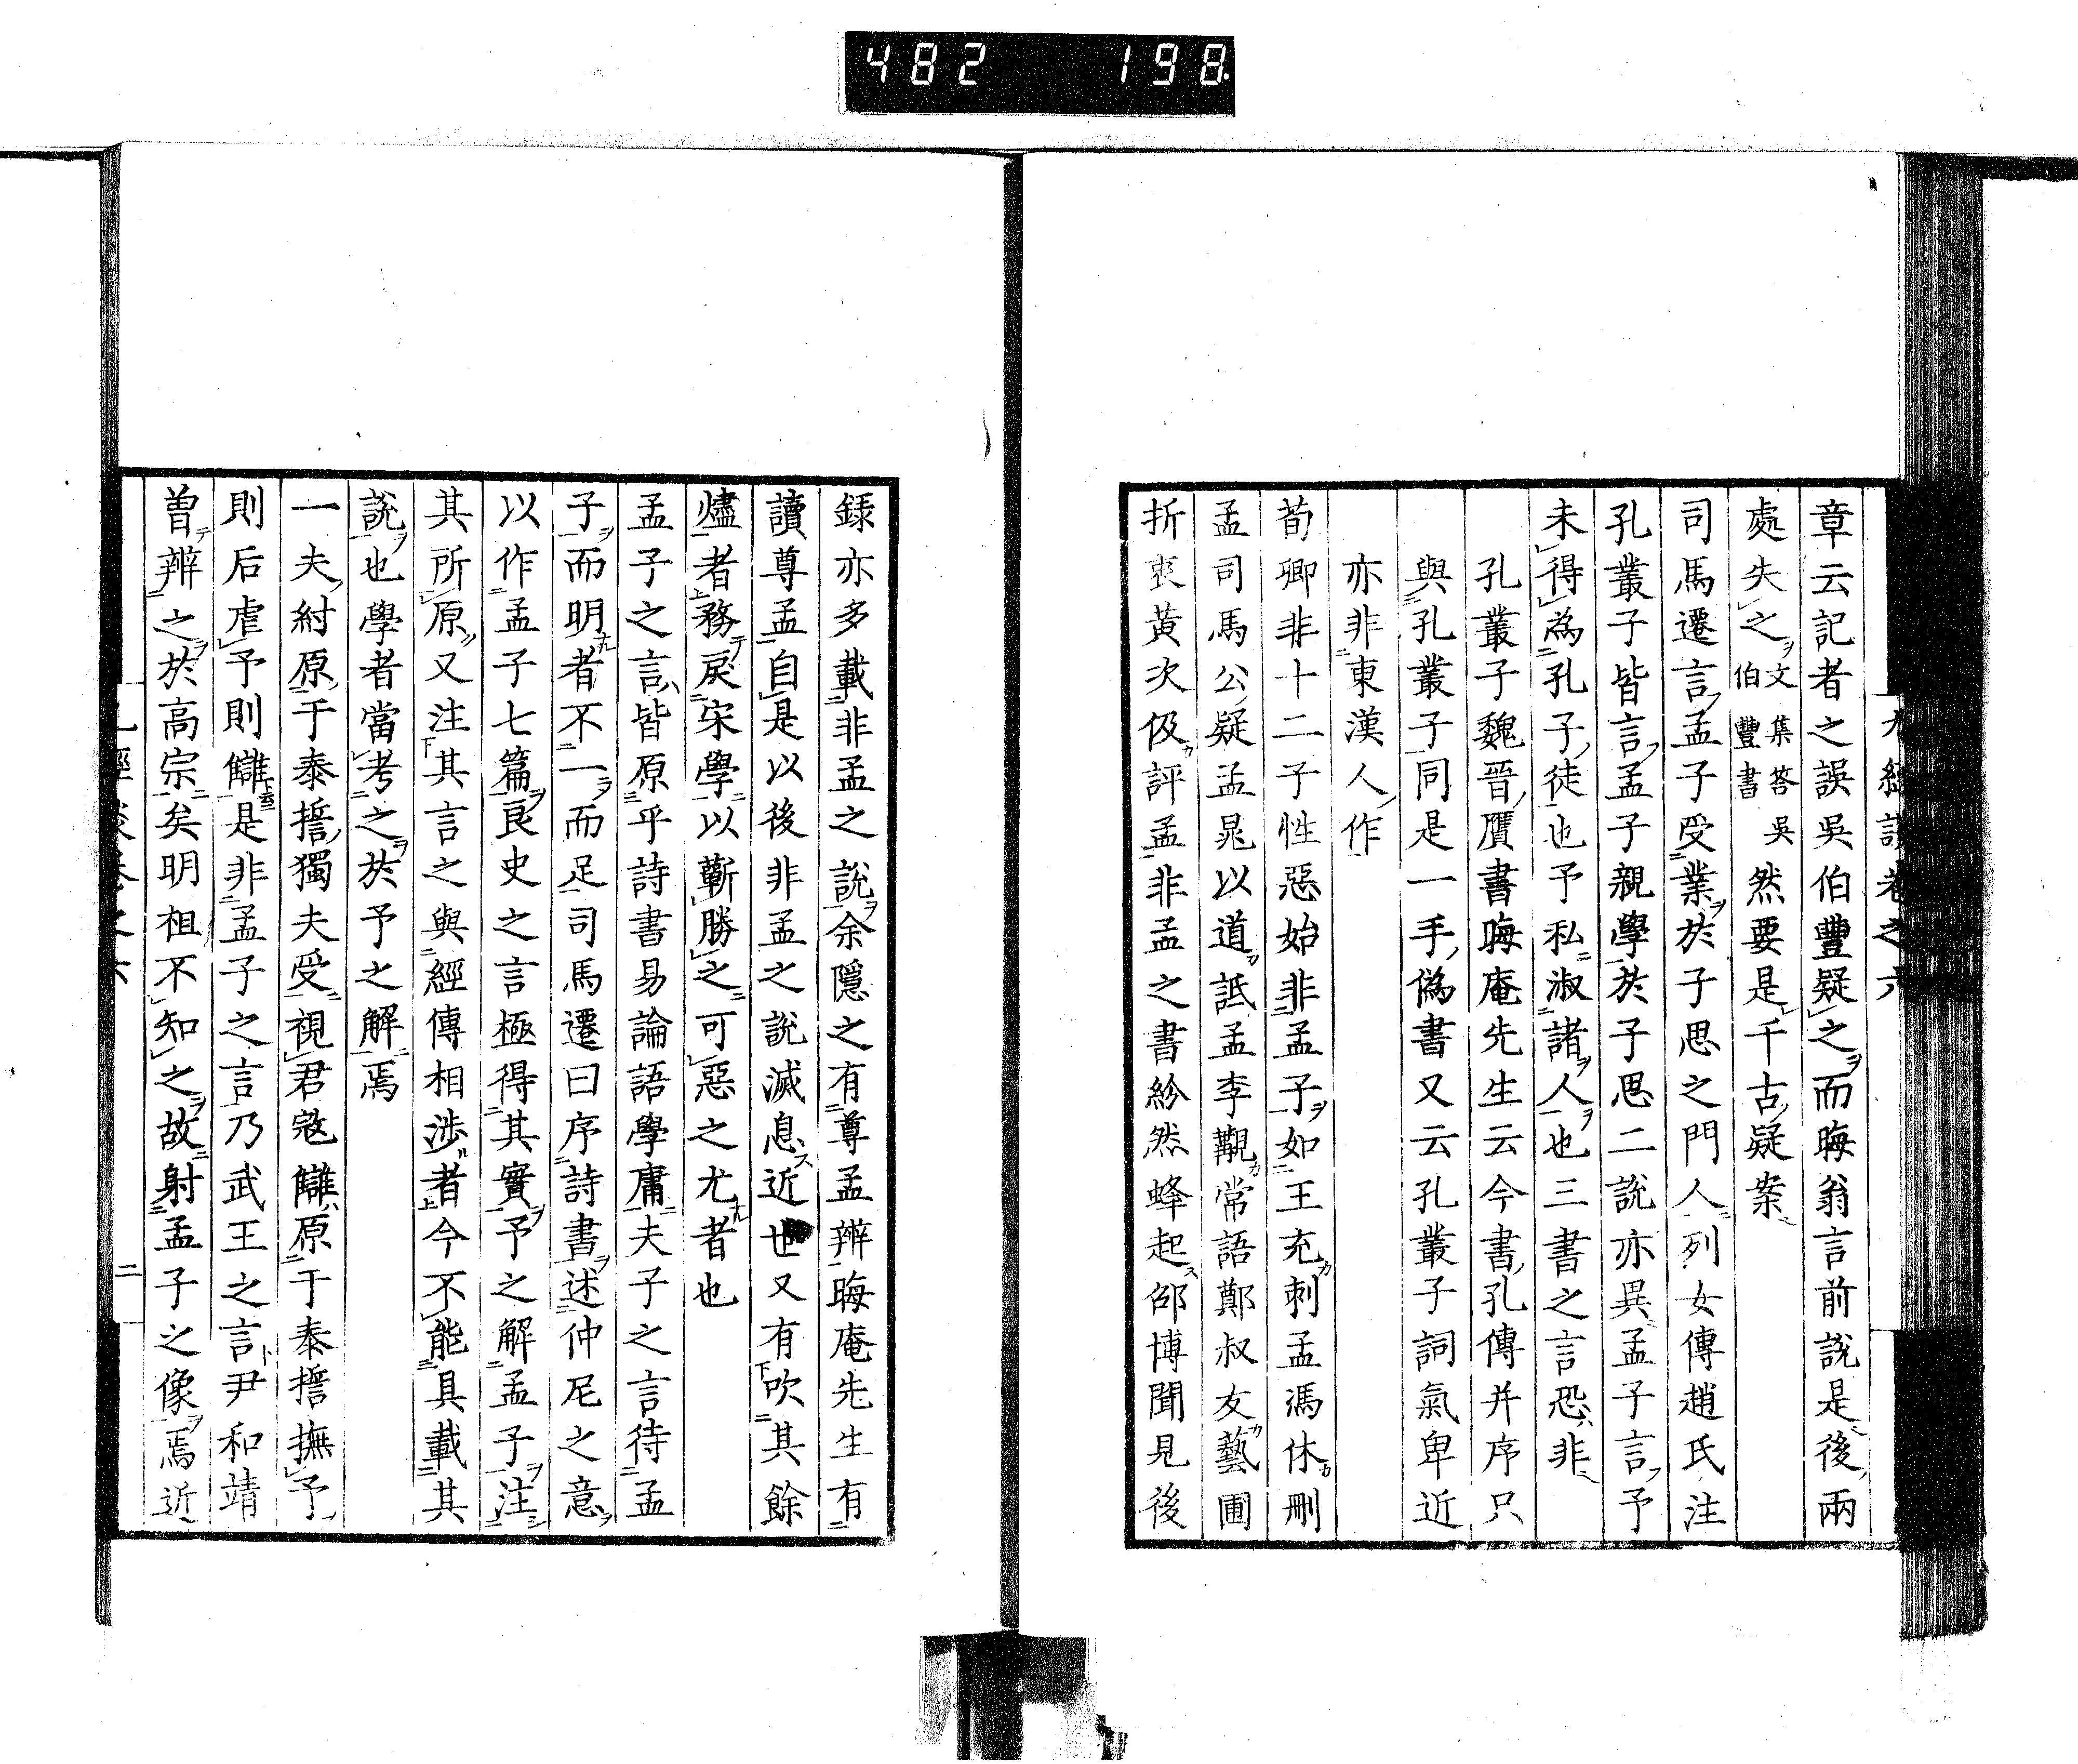 482 198
九經談卷之六
章云記者之誤吳伯豐疑之而晦翁言前說是後兩
處失之文集答吳伯豐書然要是千古疑案
司馬遷言孟子受業於子思之門人列女傳趙氏注
孔叢子皆言孟子親學於子思二說亦異孟子言予
未得為孔子徒也予私淑諸人也三書之言恐非
孔叢子魏晉贋書晦庵先生云今書孔傳并序只
與孔叢子同是一手偽書又云孔叢子詞氣卑近
亦非東漢人作
荀卿非十二子性惡始非孟子如王充刺孟馮休刪
孟司馬公疑孟晁以道詆孟李覯常語鄭叔友藝圃
折衷黃次伋評孟非孟之書紛然蜂起邵博聞見後
錄亦多載非孟之說余隱之有尊孟辨晦庵先生有
讀尊孟自是以後非孟之說滅息近世又有吹其餘
燼者務戻宋學以蘄勝之可惡之尤者也
孟子之言皆原乎詩書易論語學庸夫子之言待孟
子而明者不一而足司馬遷曰序詩書述仲尼之意
以作孟子七篇良史之言極得其實予之解孟子注
其所原又注其言之與經傳相涉者今不能具載其
說也學者當考之於予之解焉
一夫紂原于泰誓獨夫受視君寇讎原于泰誓撫予
則后虐予則讎是非孟子之言乃武王之言尹和靖
曽辨之於高宗矣明祖不知之故射孟子之像焉近
九經談卷之六 二